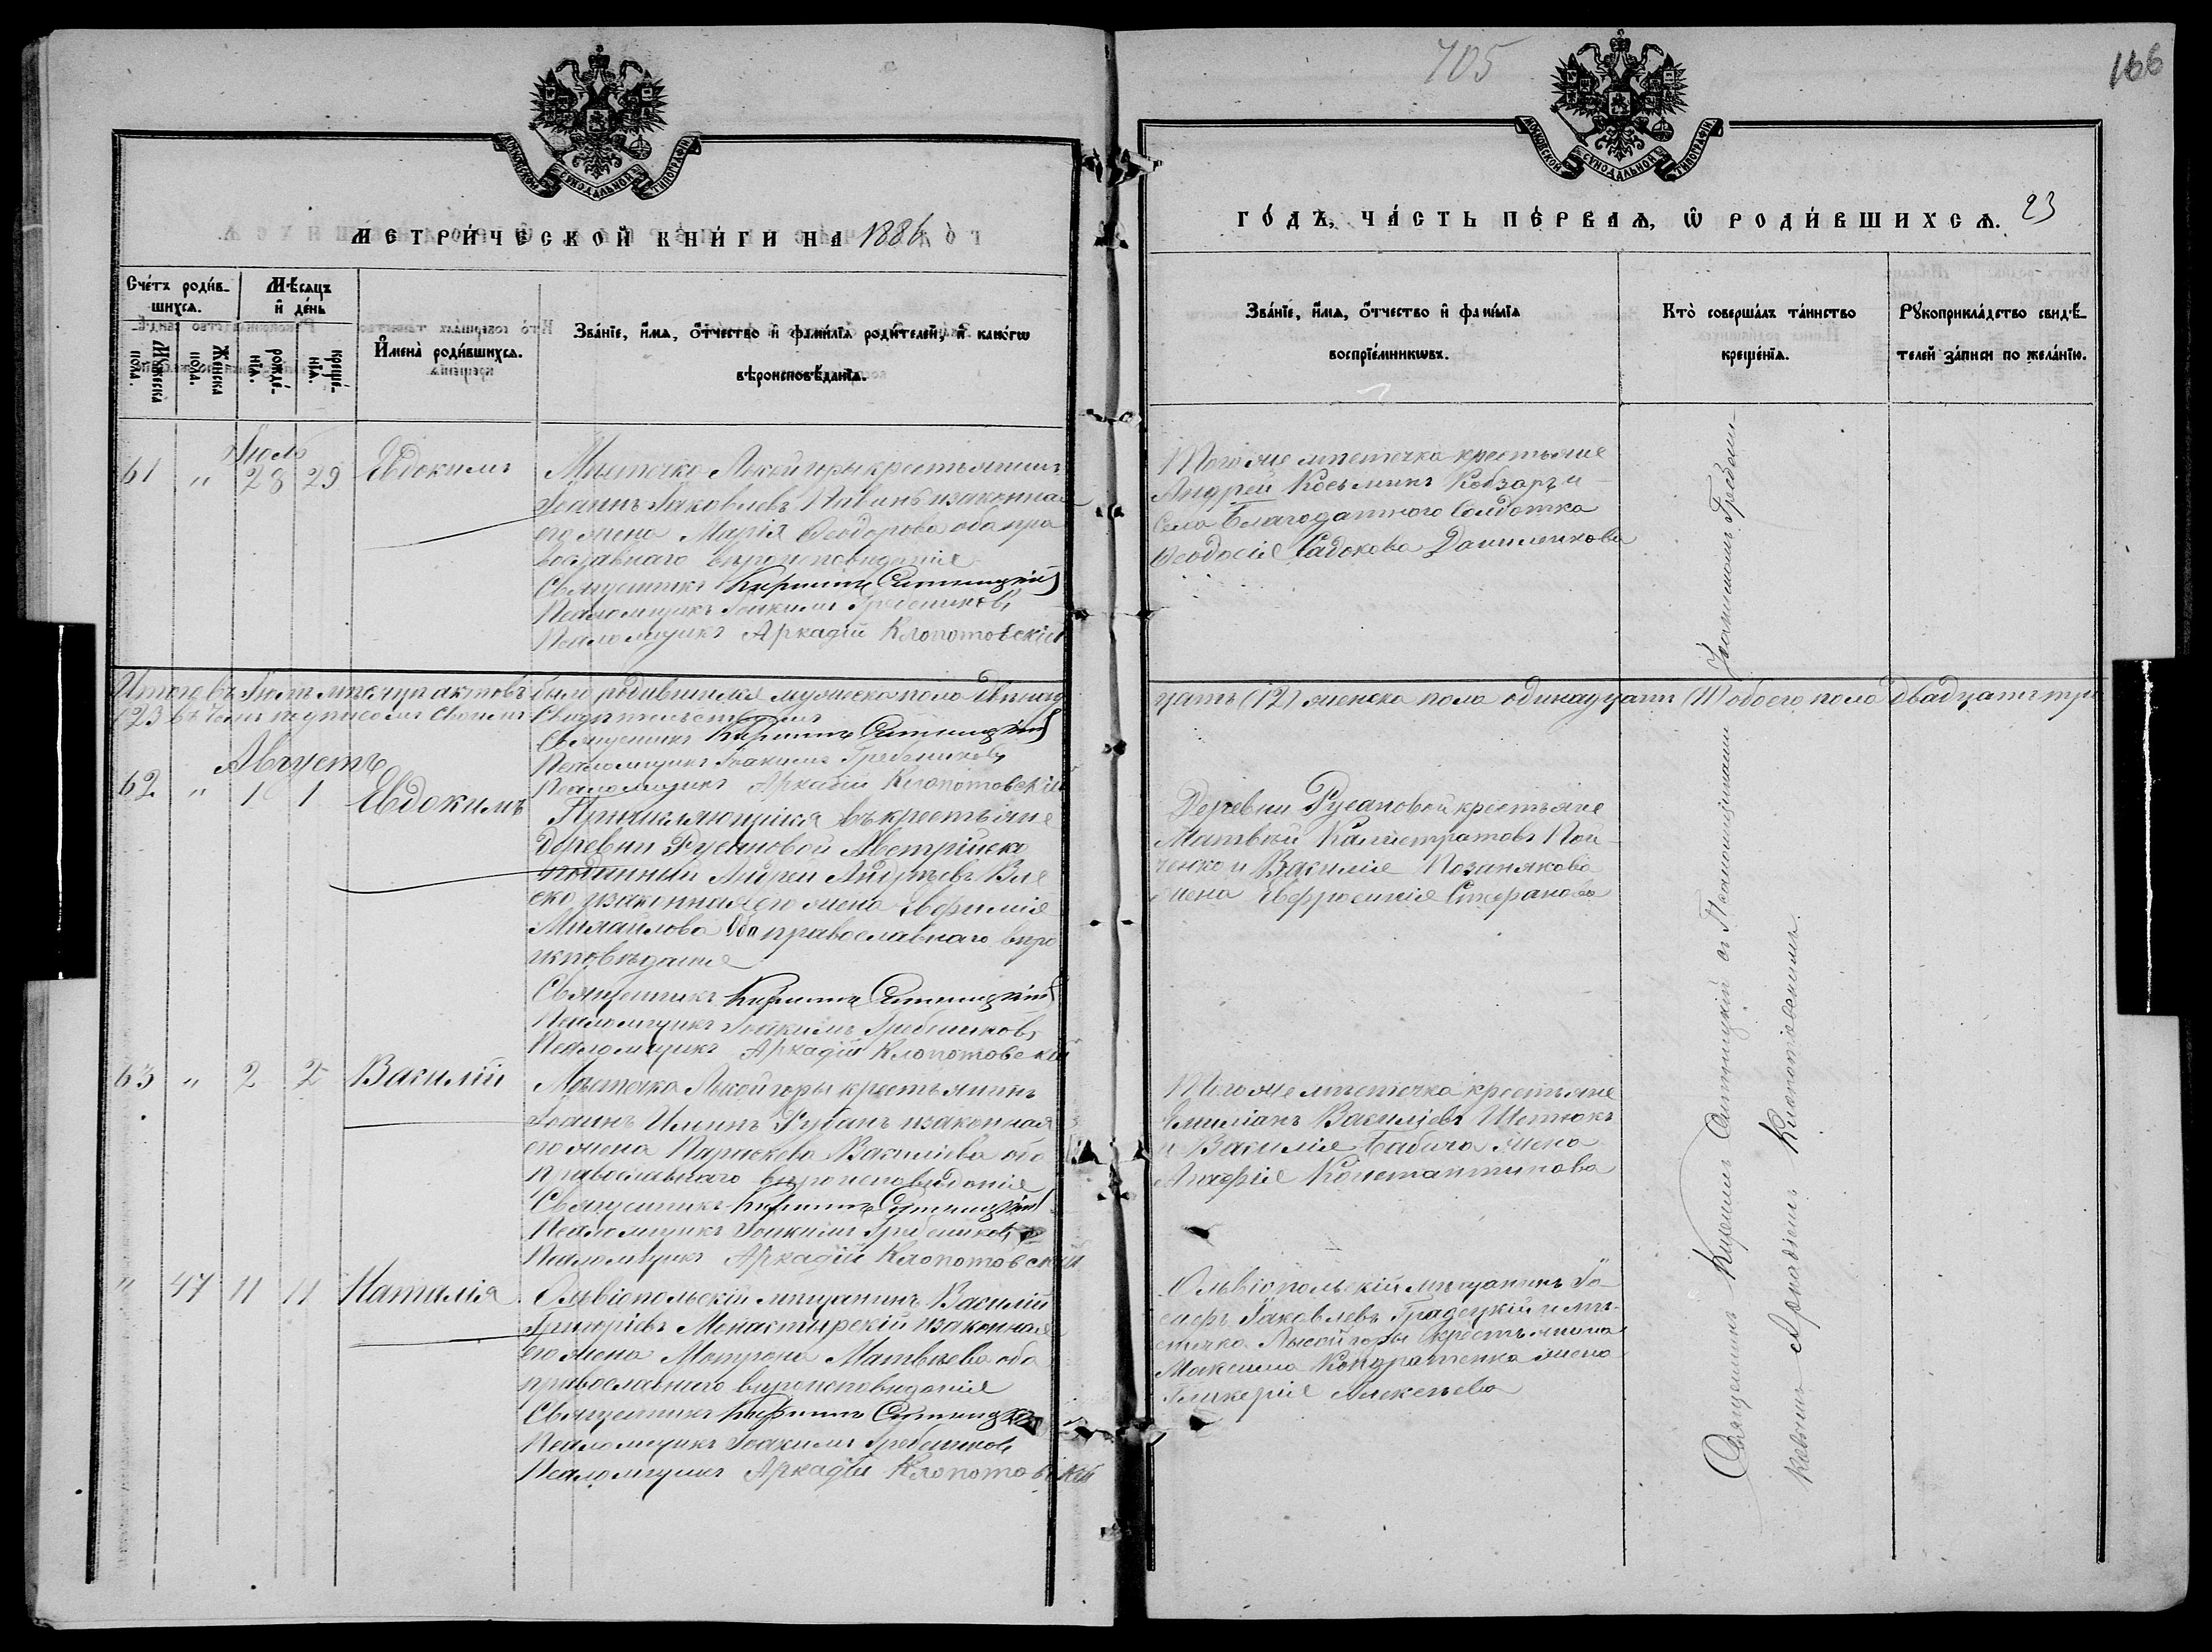 705
166
МОСКОВСКОЙ СУНОДАЛЬНОЙ ТИПОГРАФІИ
МОСКОВСКОЙ СУНОДАЛЬНОЙ ТИПОГРАФІИ
МЕТРИ́ЧЕСКОЙ КНИ́ГИ НА 1886
ГО́ДЪ, ЧА́СТЬ ПЕ́РВАѦ, Ѡ РОДИ́ВШИХСѦ. 23
Сче́тъ роди́в-
шихсѧ.
Мѣ́сѧцъ
и҆ де́нь
Мꙋжеска пола.
Женска пола.
рожде́-
нїѧ.
креще́-
нїѧ.
И҆мена̀ роди́вшихсѧ.
Зва́нїе, и҆́мѧ, ѻ҆́тчество и҆ фами́лїѧ роди́телей, и҆ како́гѡ
вѣроисповѣ́данїѧ.
Зва́нїе, и҆́мѧ, ѻ҆́тчество и҆ фами́лїѧ
воспрїе́мникѡвъ.
Кто̀ соверша́лъ та́инство
креще́нїѧ.
Рꙋкоприкла́дство свидѣ́-
телей за́писи по жела́нїю.
Іюль
61 " 28 29 Евдокимъ
Мѣстечка Лысой горы крестьянинъ
Іоаннъ Іаковлевъ Пивань и законная
его жена Марія Ѳеодорова оба пра
вославнаго вѣроисповѣданія
Священникъ Кириллъ Ситницкій
Псаломщикъ Іоакимъ Гребениковъ
Псаломщикъ Аркадій Клопотовскій
Того же мѣстечка крестьяне
Андрей Косьминъ Кобзарь и
Села Благодатного Солдатка
Ѳеодосія Садокова Данименкова
Итого въ Іюлѣ мѣсяцѣ актовъ было родившихся мужеска пола двѣнад
цать (12) женска пола одинадцать (11) обоего пола двадцать три
(23) въ чемъ подписомъ своимъ Свидѣтельствуемъ
Священникъ Кириллъ Ситницкій
Псаломщикъ Іоакимъ Гребениковъ
Псаломщикъ Аркадій Клопотовскій
Августъ
62 " 1 1 Евдокимъ
Причисляющійся въ крестьяне
деревни Русановой Австрійско
подданный Андрей Андреевъ
и законная его жена Евфимія
Михайлова Оба православнаго вѣро
исповѣданія
Священникъ Кириллъ Ситницкій
Псаломщикъ Іоакимъ Гребениковъ
Псаломщикъ Аркадій Клопотовскій
Деревни Русановой крестьяне
Матвѣй Калистратовъ Пон
ченко и Василія Позанякова
жена Евфросинія Стефанова
63 " 2 2 Василій
Мѣстечка Лысой горы крестьянинъ
Іоаннъ Ильинъ Рубанъ и законная
его жена Параскева Василіева оба
православнаго вѣроисповѣданія
Священникъ Кириллъ Ситницкій
Псаломщикъ Іоакимъ Гребениковъ
Псаломщикъ Аркадій Клопотовскій
Того же мѣстечка крестьяне
Емиліанъ Василіевъ Шетюкъ
и Василія Бабича жена
Агафія Константинова
" 47 11 11 Наталія
Ольвіопольскій мѣщанинъ Василій
Григоріевъ Монастирскій и законная
его жена Матрона Матвѣева оба
православнаго вѣроисповѣданія
Священникъ Кириллъ Ситницкій
Псаломщикъ Іоакимъ Гребениковъ
Псаломщикъ Аркадій Клопотовскій
Ольвіопольскій мѣщанинъ Іо
сифъ Іаковлевъ Градецкій и мѣ-
стечка Лысой горы крестьянина
Максима Кондратенка жена
Гликерія Алексѣева
Священникъ Кириллъ Ситницкій съ Псаломщиками Іоакимомъ Гребени-
ковымъ и Аркадіемъ Клопотовскимъ.